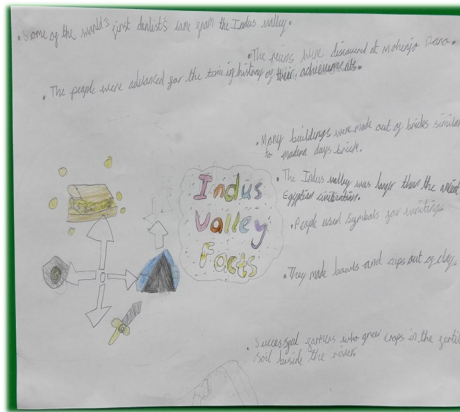 • Some of the world's first dentist's were from the Indus valley.
• The ruins were discovered at mohenjo
• The people were advanced for the time in history of their achievements.
• Many buildings were made out of bricks similar
to modern days brick.
Indus
Valley
Facts
• The Indus valley was larger than the
Egyptian civilization.
• People used symbols for writing
• They made bowls and cups out of clay.
• Successful farmers who grew crops in the fertile
soil beside the rivers